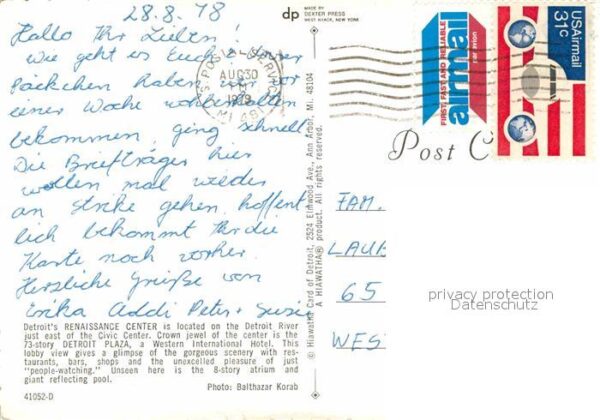 28.8.78
Hallo Ihr Lieben!
wie geht es Euch? Euer
Päckchen haben wir vor
einer Woche wohlbehalten
bekommen, ging schnell
Die Briefträger hier
wollen mal wieder
an Streke gehen, hoffent
lich bekommt Ihr die
Karte noch vorher.
Herzliche Grüße von
Erika Addi Peter + Susie
Detroit's RENAISSANCE CENTER is located on the Detroit River
just east of the Civic Center. Crown jewel of the center is the
73-story DETROIT PLAZA, a Western International Hotel. This
lobby view gives a glimpse of the gorgeous scenery with res-
taurants, bars, shops and the unexcelled pleasure of just
"people-watching." Unseen here is the 8-story atrium and
giant reflecting pool.
Photo: Balthazar Korab
41052-D
dp
MADE BY
DEXTER PRESS
WEST NYACK, NEW YORK
© Hiawatha Card of Detroit, 2524 Elmwood Ave., Ann Arbor, Mi. 48104
A HIAWATHA® product. All rights reserved.
AUG 30
PM
MI 481
FIRST, FAST AND RELIABLE
airmail
par avion
USAirmail
31c
Post C
FAM.
LAUR
65
WES
privacy protection
Datenschutz